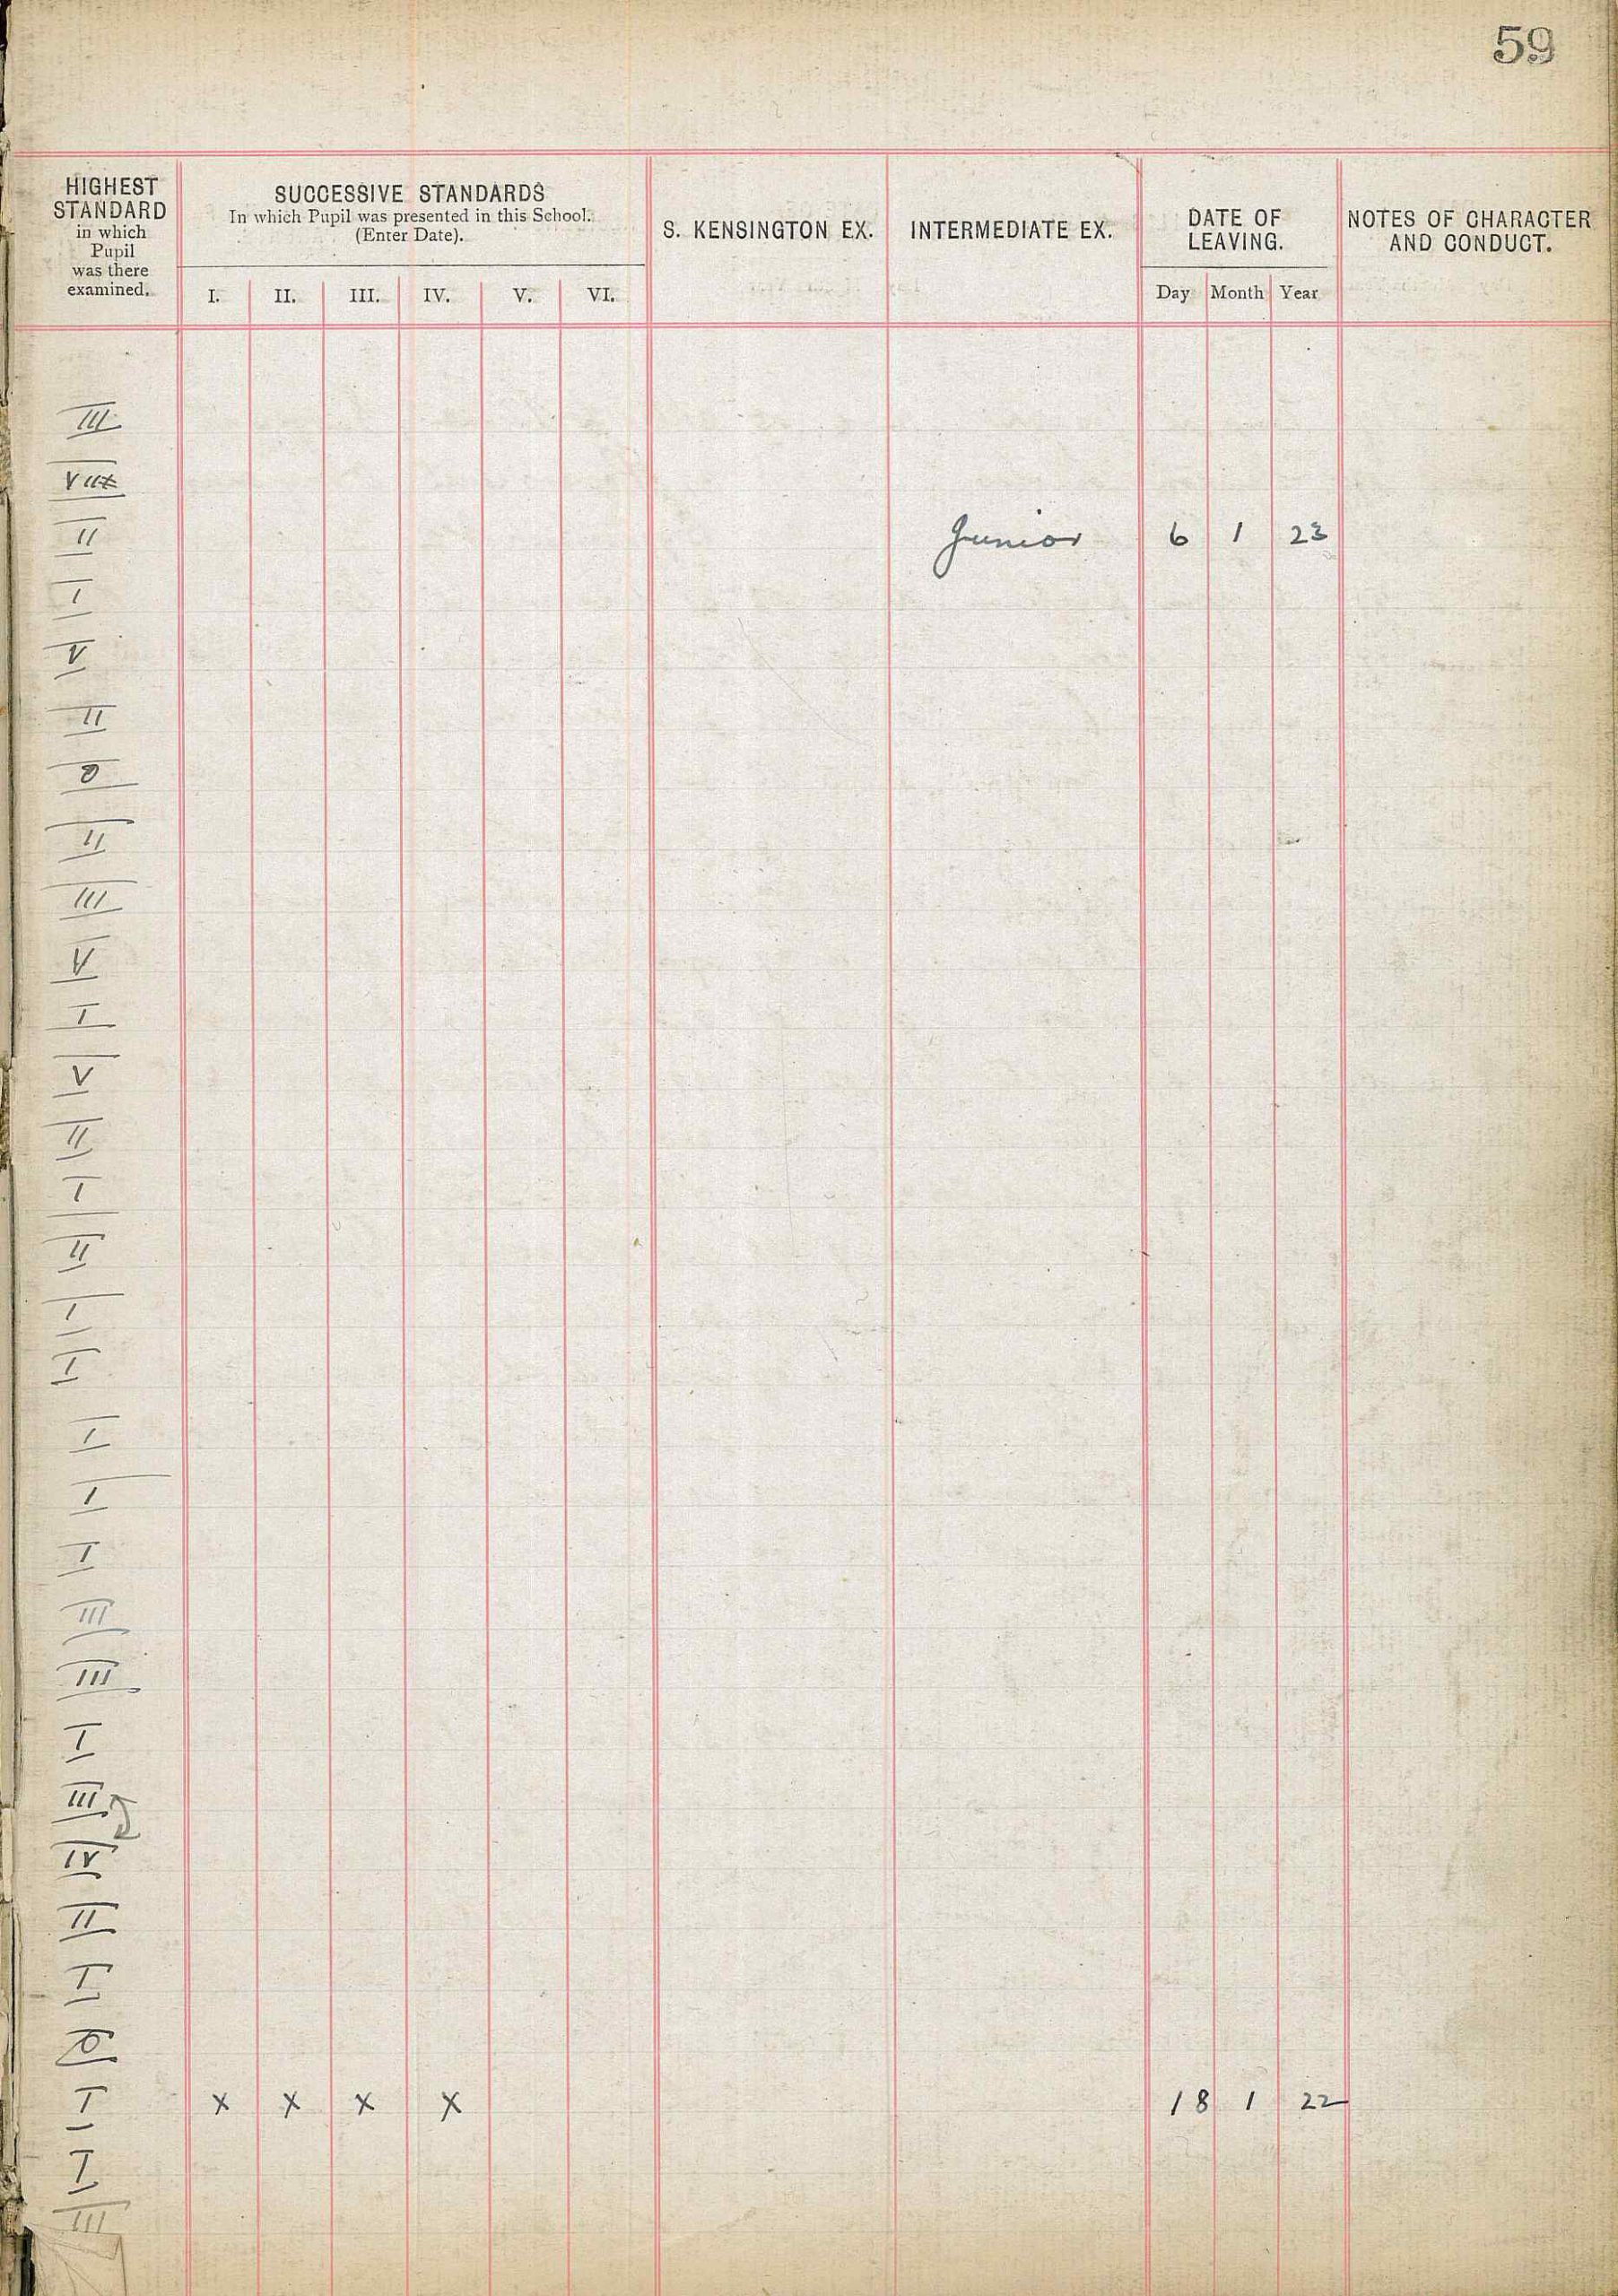 59
HIGHEST STANDARD in which Pupil was there examined.
SUCCESSIVE STANDARDS
In which Pupil was presented in this School.
(Enter Date).
I. II. III. IV. V. VI.
S. KENSINGTON EX.
INTERMEDIATE EX.
DATE OF LEAVING.
Day Month Year
NOTES OF CHARACTER AND CONDUCT.
III
II Junior 6 1 23
I
V
II
0
II
III
V
I
V
II
I
II
I
I
I
I
I
III
III
I
III
IV
II
I
0
I x x x x 18 1 22
I
III